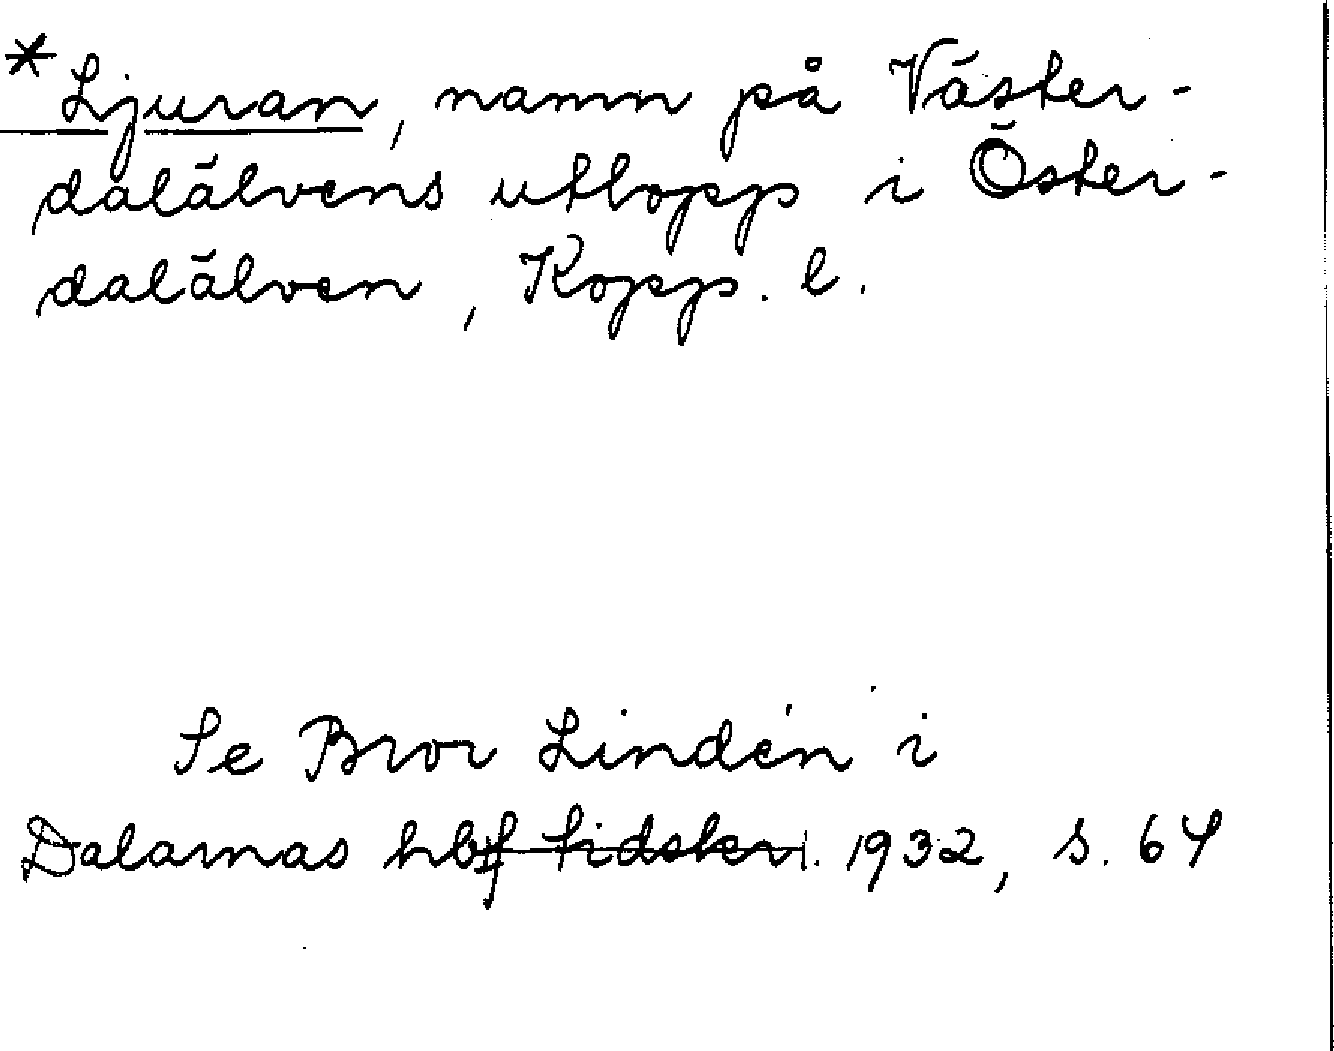 *Ljuran, namn på Väster-
dalälvens utlopp i Öster-
dalälven, Kopp. l.
Se Bror Lindén i
Dalarnas hbf tidskr. 1932, s. 64